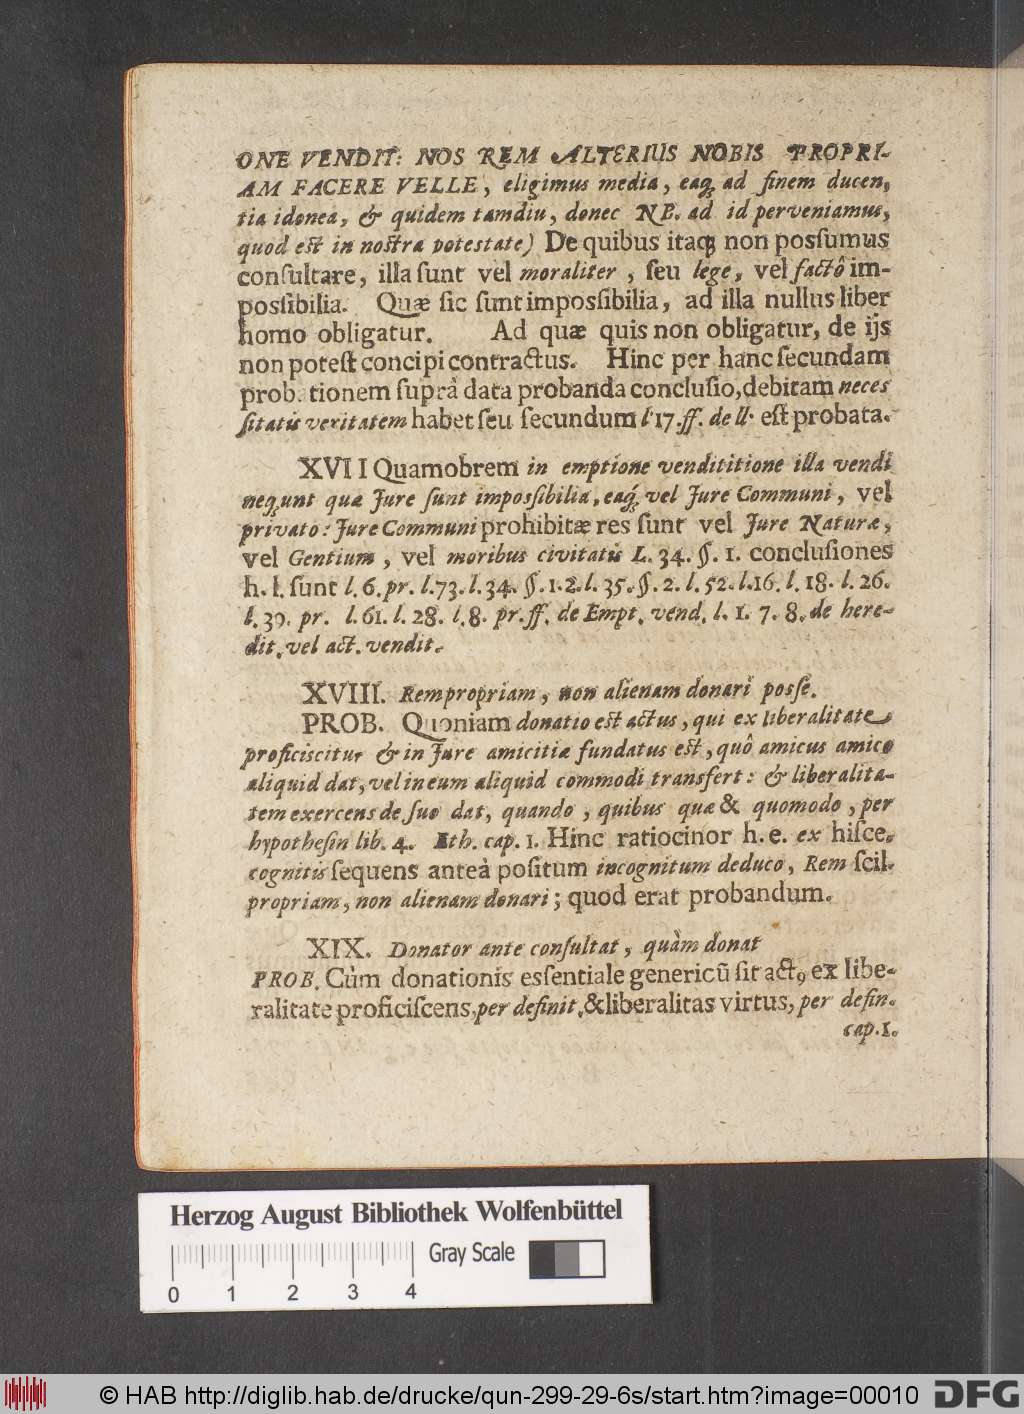 ONE VENDIT: NOS REM ALTERIUS NOBIS PROPRI-
AM FACERE VELLE, eligimus media, eaq; ad finem ducen,
tia idonea, & quidem tamdiu, donec NB. ad id perveniamus,
quod est in nostra potestate) De quibus itaq; non possumus
consultare, illa sunt vel moraliter, seu lege, vel factô im-
possibilia. Quæ sic sunt impossibilia, ad illa nullus liber
homo obligatur. Ad quæ quis non obligatur, de ijs
non potest concipi contractus. Hinc per hanc secundam
prob. tionem suprà data probanda conclusio, debitam neces
sitatis veritatem habet seu secundum l 17. ff. de ll. est probata.
XVII Quamobrem in emptione vendititione illa vendi
neq;unt quæ Jure sunt impossibilia, eaq; vel Jure Communi, vel
privato: Jure Communi prohibitæ res sunt vel Jure Naturæ,
vel Gentium, vel moribus civitatis L. 34. §. 1. conclusiones
h. l. sunt l. 6. pr. l. 73. l. 34. §. 1. 2. l. 35. §. 2. l. 52. l. 16. l. 18. l. 26.
l. 39. pr. l. 61. l. 28. l. 8. pr. ff. de Empt. vend. l. 1. 7. 8. de here-
dit. vel act. vendit.
XVIII. Rem propriam, non alienam donari posse.
PROB. Quoniam donatio est actus, qui ex liberalitate
proficiscitur & in Jure amicitiæ fundatus est, quô amicus amico
aliquid dat, vel in eum aliquid commodi transfert: & liberalita-
tem exercens de suo dat, quando, quibus quæ & quomodo, per
hypothesin lib. 4. Eth. cap. 1. Hinc ratiocinor h. e. ex hisce
cognitis sequens anteà positum incognitum deduco, Rem scil.
propriam, non alienam donari; quod erat probandum.
XIX. Donator ante consultat, quàm donat
PROB. Cùm donationis essentiale genericũ sit actꝰ ex libe-
ralitate proficiscens, per definit. & liberalitas virtus, per defin.
cap. 1.
Herzog August Bibliothek Wolfenbüttel
Gray Scale
0 1 2 3 4
© HAB http://diglib.hab.de/drucke/qun-299-29-6s/start.htm?image=00010
DFG